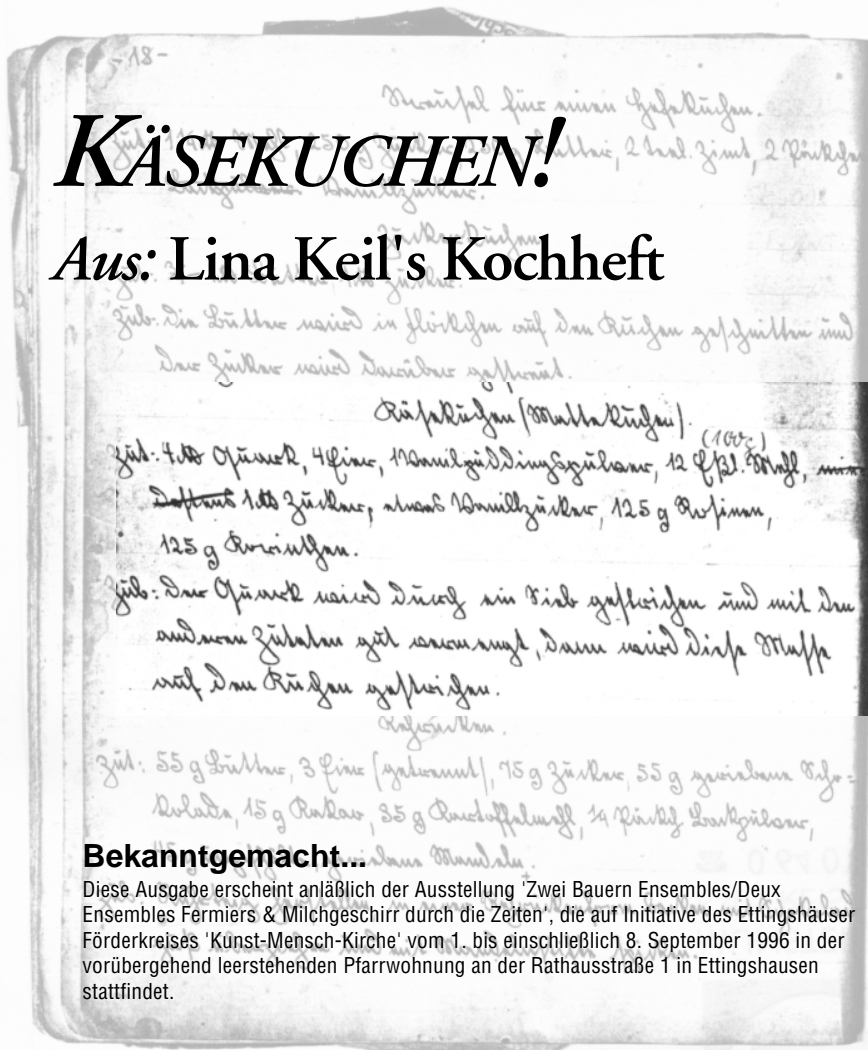 -18-
Streusel für einen Hefekuchen.
KÄSEKUCHEN!
Butter, 2 Teel. Zimt, 2 Päckche
Vanillzucker.
Zuckerkuchen
Aus: Lina Keil's Kochheft
Zub: Die Butter wird in Flöckchen auf den Kuchen geschnitten und
der Zucker wird darüber gestreut.
Käsekuchen (Mattekuchen).
(100g)
Zut: 4 ℔ Quark, 4 Eier, 1 Vanilpuddingspulver, 12 Eßl. Mehl, min
destens 1 ℔ Zucker, etwas Vanillzucker, 125 g Rosinen,
125 g Korinthen.
Zub: Der Quark wird durch ein Sieb gestrichen und mit den
anderen Zutaten gut vermengt, dann wird diese Masse
auf den Kuchen gestrichen.
Rehrücken.
Zut: 55 g Butter, 3 Eier (getrennt), 75 g Zucker, 55 g geriebene Scho-
kolade, 15 g Kakao, 35 g Kartoffelmehl, 1/4 Päckch Backpulver,
geriebene Mandeln.
Bekanntgemacht...
Diese Ausgabe erscheint anläßlich der Ausstellung 'Zwei Bauern Ensembles/Deux
Ensembles Fermiers & Milchgeschirr durch die Zeiten', die auf Initiative des Ettingshäuser
Förderkreises 'Kunst-Mensch-Kirche' vom 1. bis einschließlich 8. September 1996 in der
vorübergehend leerstehenden Pfarrwohnung an der Rathausstraße 1 in Ettingshausen
stattfindet.